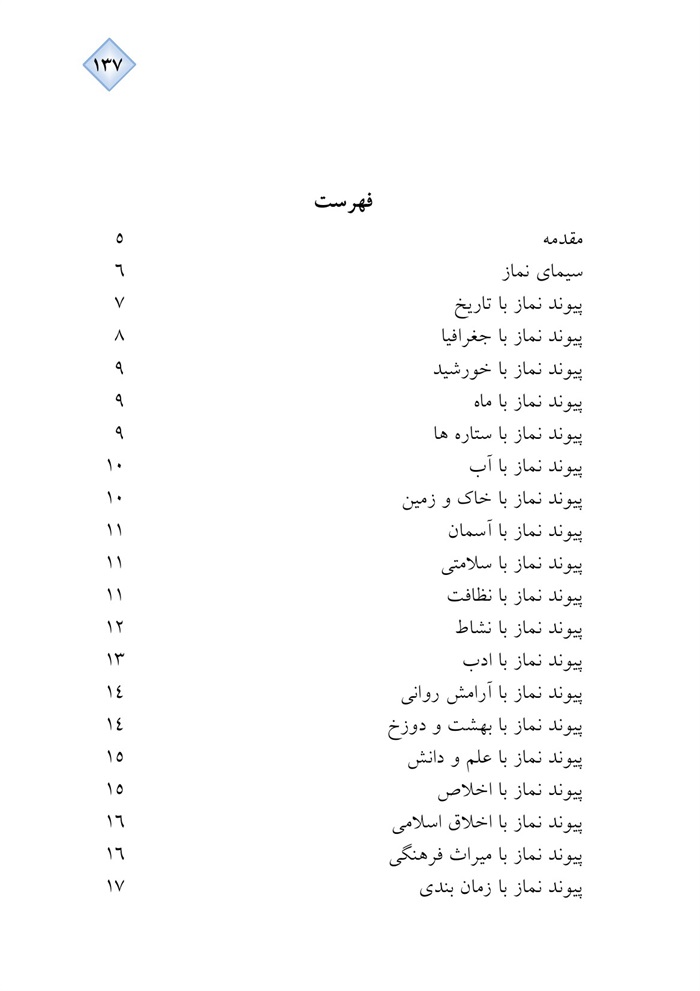 ۱۳۷
فهرست
مقدمه ٥
سیمای نماز ٦
پیوند نماز با تاریخ ٧
پیوند نماز با جغرافیا ٨
پیوند نماز با خورشید ٩
پیوند نماز با ماه ٩
پیوند نماز با ستاره ها ٩
پیوند نماز با آب ١٠
پیوند نماز با خاک و زمین ١٠
پیوند نماز با آسمان ١١
پیوند نماز با سلامتی ١١
پیوند نماز با نظافت ١١
پیوند نماز با نشاط ١٢
پیوند نماز با ادب ١٣
پیوند نماز با آرامش روانی ١٤
پیوند نماز با بهشت و دوزخ ١٤
پیوند نماز با علم و دانش ١٥
پیوند نماز با اخلاص ١٥
پیوند نماز با اخلاق اسلامی ١٦
پیوند نماز با میراث فرهنگی ١٦
پیوند نماز با زمان بندی ١٧